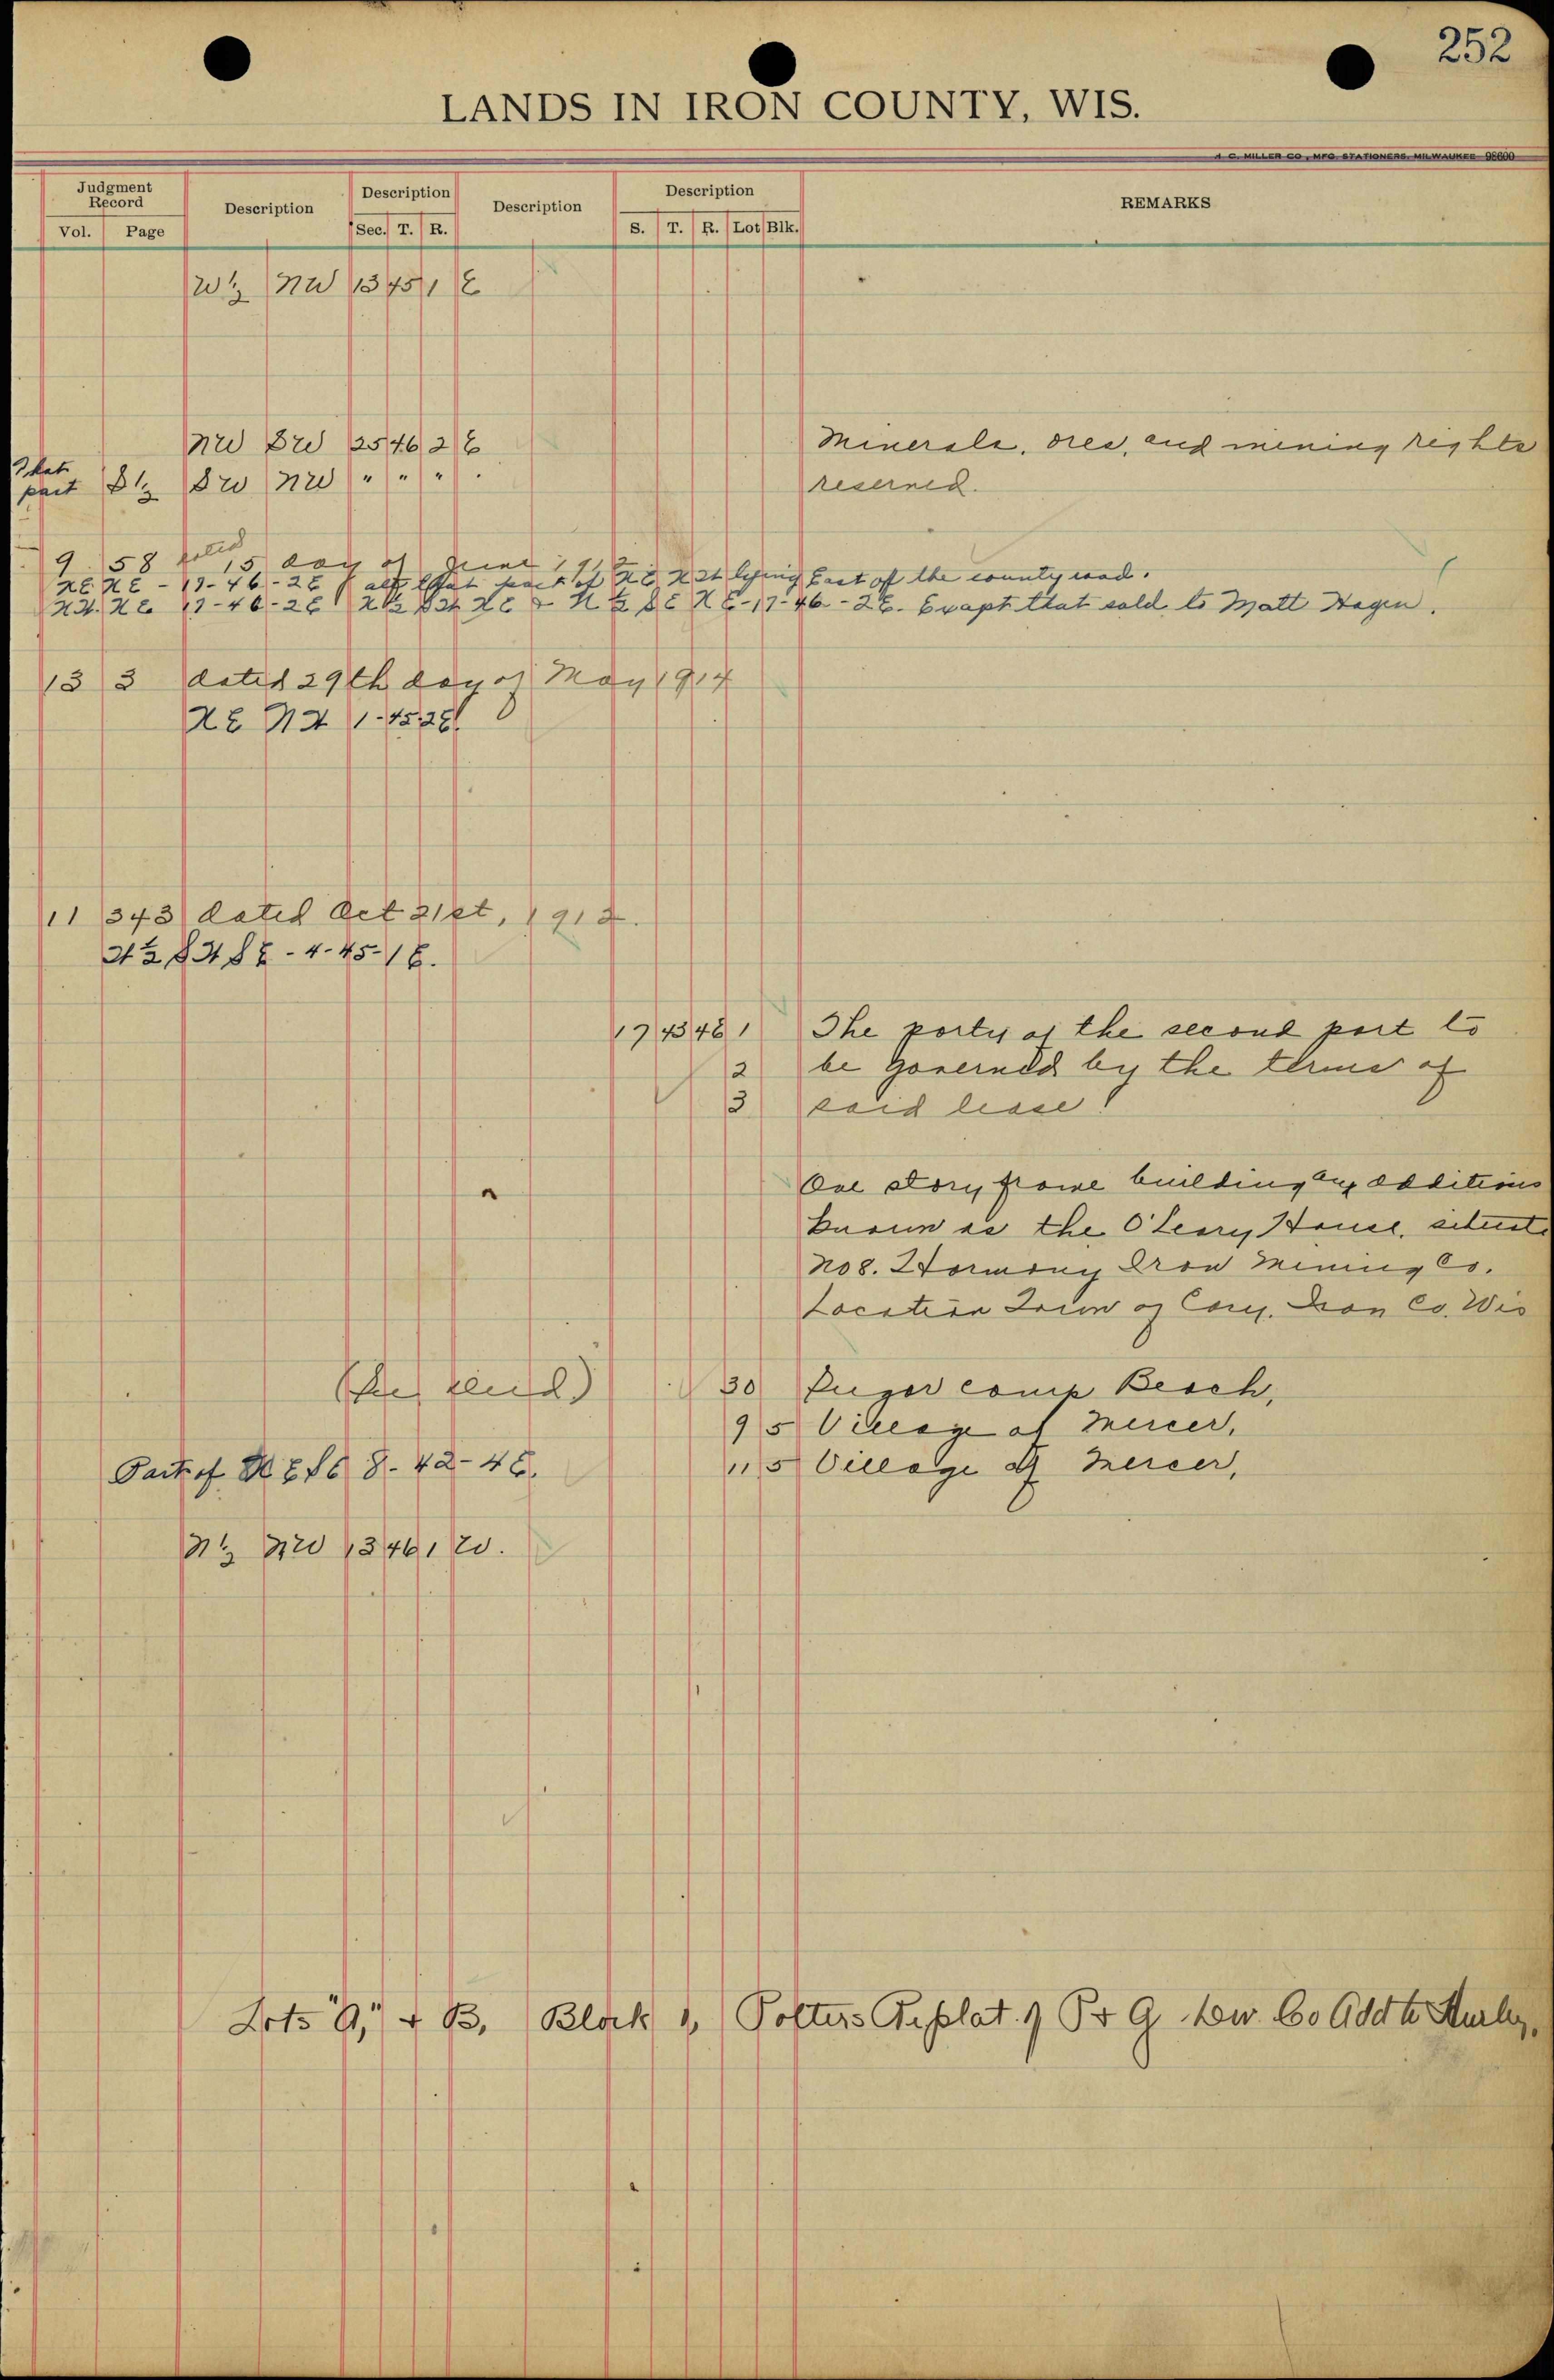 252
LANDS IN IRON COUNTY, WIS.
A. C. MILLER CO., MFG. STATIONERS, MILWAUKEE 98600
Judgment Record Description Description Description Description REMARKS
Vol. Page Sec. T. R. S. T. R. Lot Blk.
W½ NW 13 45 1 E
NW SW 25 46 2 E Minerals, ores, and mining rights
That part S½ SW NW " " " " reserved.
9 58 dated 15 day of June 1912
NE NE - 17-46-2E also that part of NE NW lying East of the county road.
NW. NE 17-46-2E N½ SW NE & N½ SE NE-17-46-2E. Exapt that sold to Matt Hagen.
13 3 dated 29th day of May 1914
NE NW 1-45-2E.
11 343 dated Oct 21st, 1912.
W½ SW SE - 4-45-1E.
17 43 4E 1 The party of the second part to
2 be governed by the terms of
3 said lease.
One story frame building and additions
known as the O'Leary House, situate
No 8. Harmony Iron Mining Co.
Location Town of Cary. Iron Co. Wis
30 Camp Beach,
9 5 Village of Mercer,
Part of SE 8-42-4E. 11 5 Village of Mercer,
N½ NW 13 46 1 W.
Lots "A," + B, Block 1, Potters Replat of P + G Dev. Co Add to Hurley.